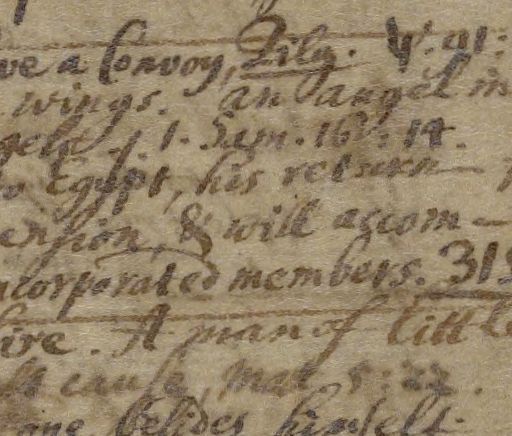 ve a Convoy, Zilg. ψ. 91:
wings. an angel in
gelst. 1. Sam. 16: 14.
to Egypt, his return
ension, & will accom-
ncorporated members. 315
ire. A man of little
cause, mat 5: 22.
one besides himself.